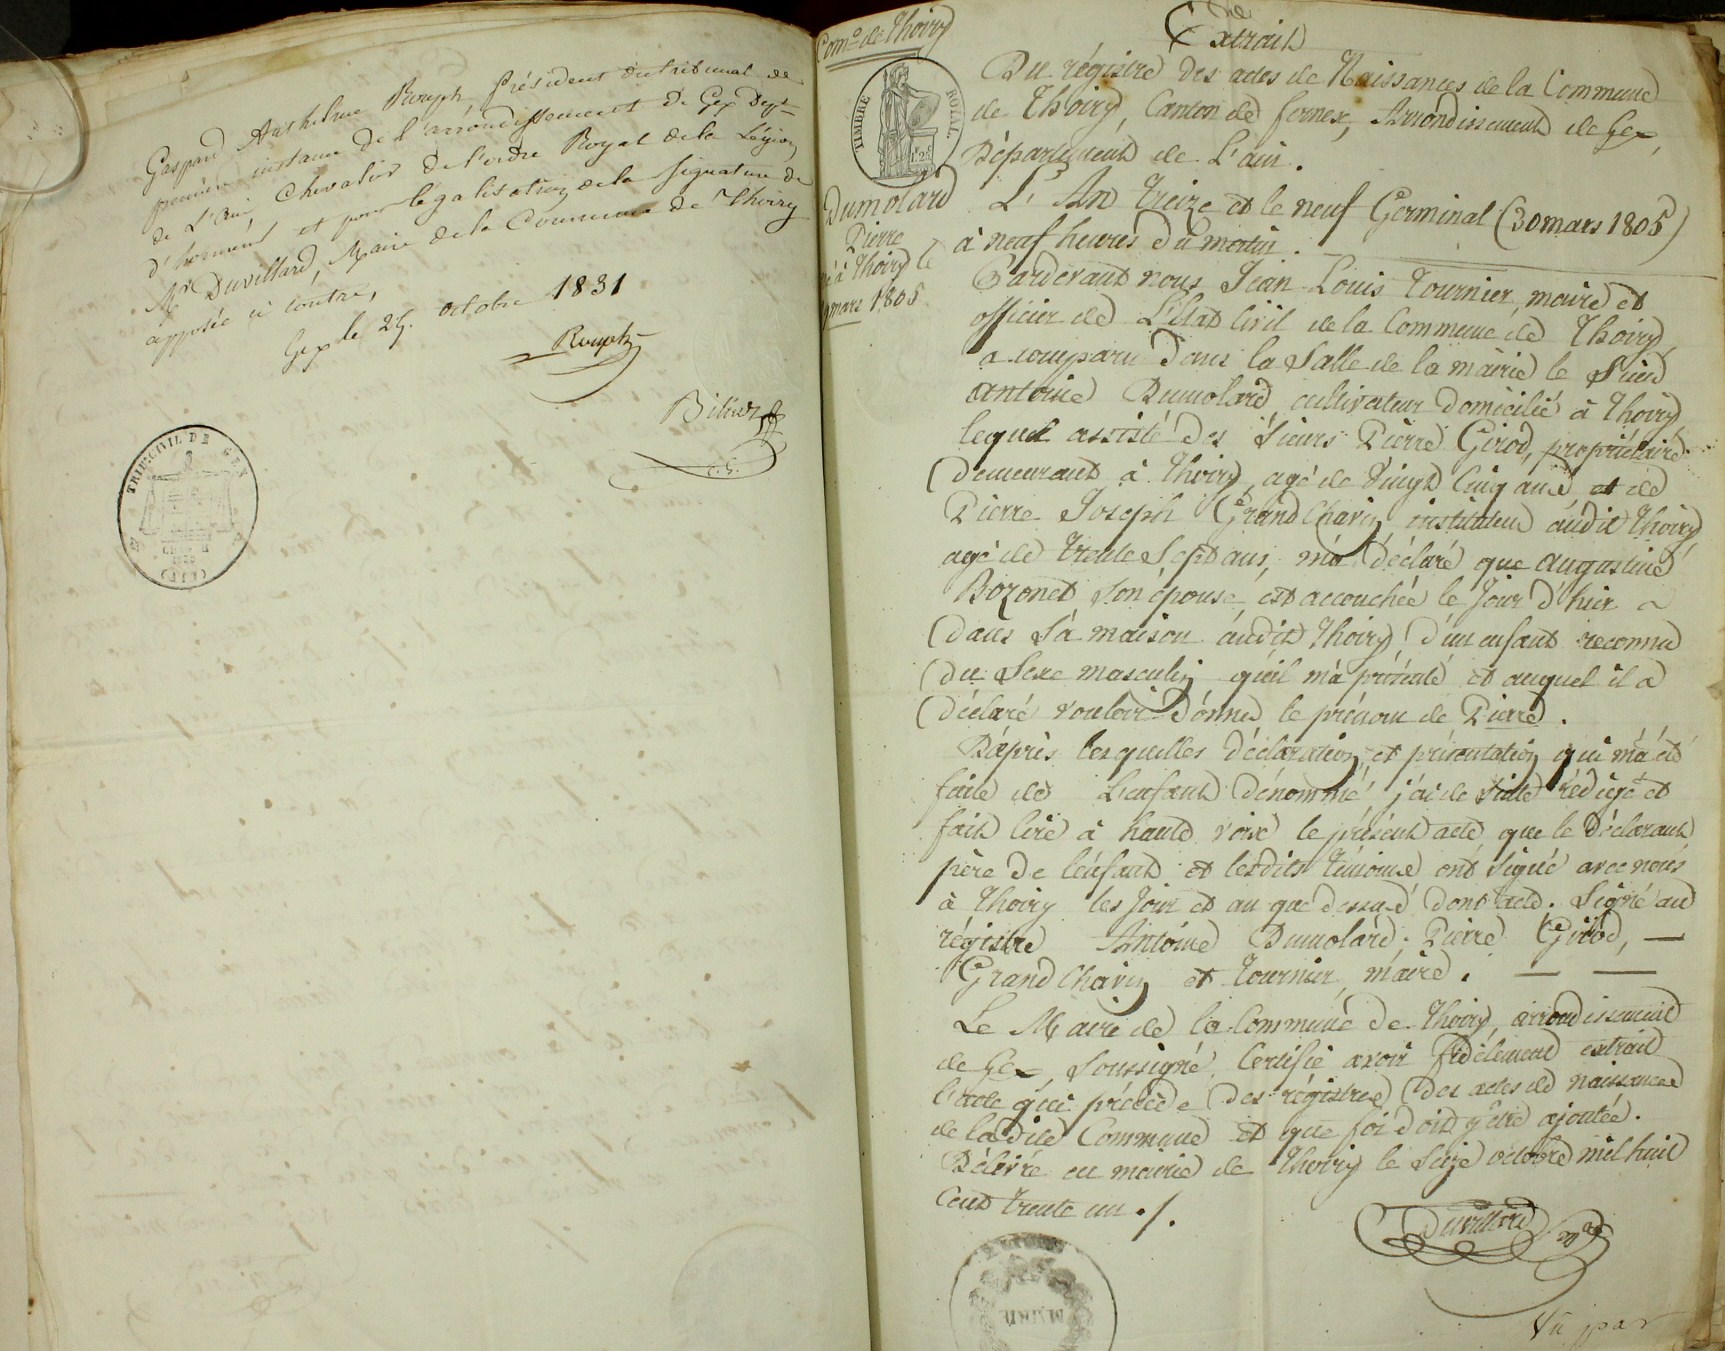 Gaspard Anthelme Rouph, Président du tribunal de
première instance de l'arrondissement de Gex Dept
de L'Ain, Chevalier de l'ordre Royal de la Légion
d'honneur, et pour légalisation de la signature de
Mr Duvillard, Maire de la Commune de Thoiry
apposée ci contre,
Gex le 25. octobre 1831
TRIB: CIVIL DE GEX
Come de Thoiry
TIMBRE ROYAL
1f 25
Dumolard
Pierre
né à Thoiry le
mars 1805
Extrait
Du régistre des actes de Naissances de la Commune
de Thoiry, Canton de fernex, Arrondissement de Gex,
Département de L'ain.
L'An treize et le neuf Germinal (30 mars 1805)
à neuf heures du matin.
Pardevant nous Jean Louis Tournier, maire et
officier de L'Etat Civil de la Commune de Thoiry,
a comparu dans la Salle de la mairie le Sieur
antoine Dumolard, cultivateur domicilié à Thoiry,
lequel assisté des Sieurs Pierre Girod, propriétaire
demeurant à Thoiry, agé de Vingt Cinq ans et de
Pierre Joseph GrandChavin instituteur audit Thoiry
agé de trente Sept ans, m'a déclaré que augustine
Bozonet son épouse, est accouchée le Jour d'hier
dans Sa maison audit Thoiry, d'un enfant reconnu
du Sexe masculin qu'il m'a présenté et auquel il a
déclaré vouloir donner le prénom de Pierre.
D'après lesquelles déclaration et présentation qui m'a été
faite de L'enfant dénommé, j'ai de suite rédigé et
fait lire à haute voix le présent acte que le Déclarant
père de l'enfant et lesdits témoins ont signé avec nous
à Thoiry les Jour et an que dessus dont acte. Signé au
régistre Antoine Dumolard. Pierre Girod, —
GrandChavin et Tournier, maire. — —
Le Maire de la Commune de Thoiry, arrondissement
de Gex, Soussigné, Certifie avoir fidèlement extrait
l'acte qui précède des régistres des actes de naissances
de la dite Commune et que foi doit y être ajoutée.
Délivré en mairie de Thoiry le Seize octobre mil huit
Cent trente un ./.
Duvillard
MAIRIE
Vu par